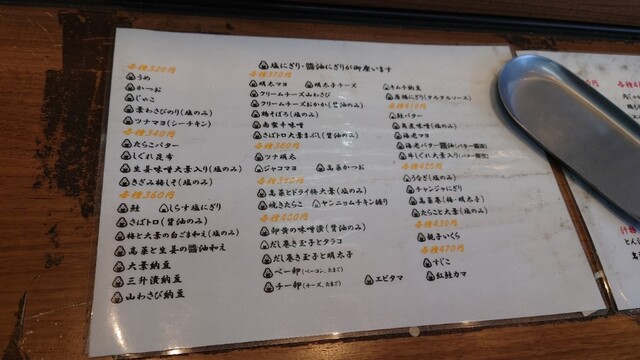 塩にぎり・醤油にぎりが御座います
各種320円
うめ
かつお
じゃこ
葉わさびのり(塩のみ)
ツナマヨ(シーチキン)
各種340円
たらこバター
しぐれ昆布
生姜味噌大葉入り(塩のみ)
きざみ梅しそ(塩のみ)
各種360円
鮭 しらす塩にぎり
さばトロ(醤油のみ)
梅と大葉の白ごま和え(塩のみ)
高菜と生姜の醤油和え
大葉納豆
三升漬納豆
山わさび納豆
各種370円
明太マヨ 明太子チーズ
クリームチーズ山わさび
クリームチーズおかか(醤油のみ)
鶏そぼろ(塩のみ)
南蛮辛味噌
さばトロ大葉まぶし(醤油のみ)
各種380円
ツナ明太
ジャコマヨ 高菜かつお
高菜とドライ柿大葉(塩のみ)
焼きたらこ ヤンニョムチキン握り
各種400円
卵黄の味噌漬(醤油のみ)
だし巻き玉子とタラコ
だし巻き玉子と明太子
ベー卵(ベーコン、たまご)
チー卵(チーズ、たまご)
エビタマ
キムチ納豆
(タルタルソース)
各種410円
鮭バター
(塩のみ)
海老マヨ
海老バター醤油
牛しぐれ大葉入り
各種420円
うなぎ(塩のみ)
チャンジャにぎり
高菜巻(梅・明太子)
たらこと大葉(塩のみ)
各種430円
親子いくら
各種470円
すじこ
紅鮭カマ